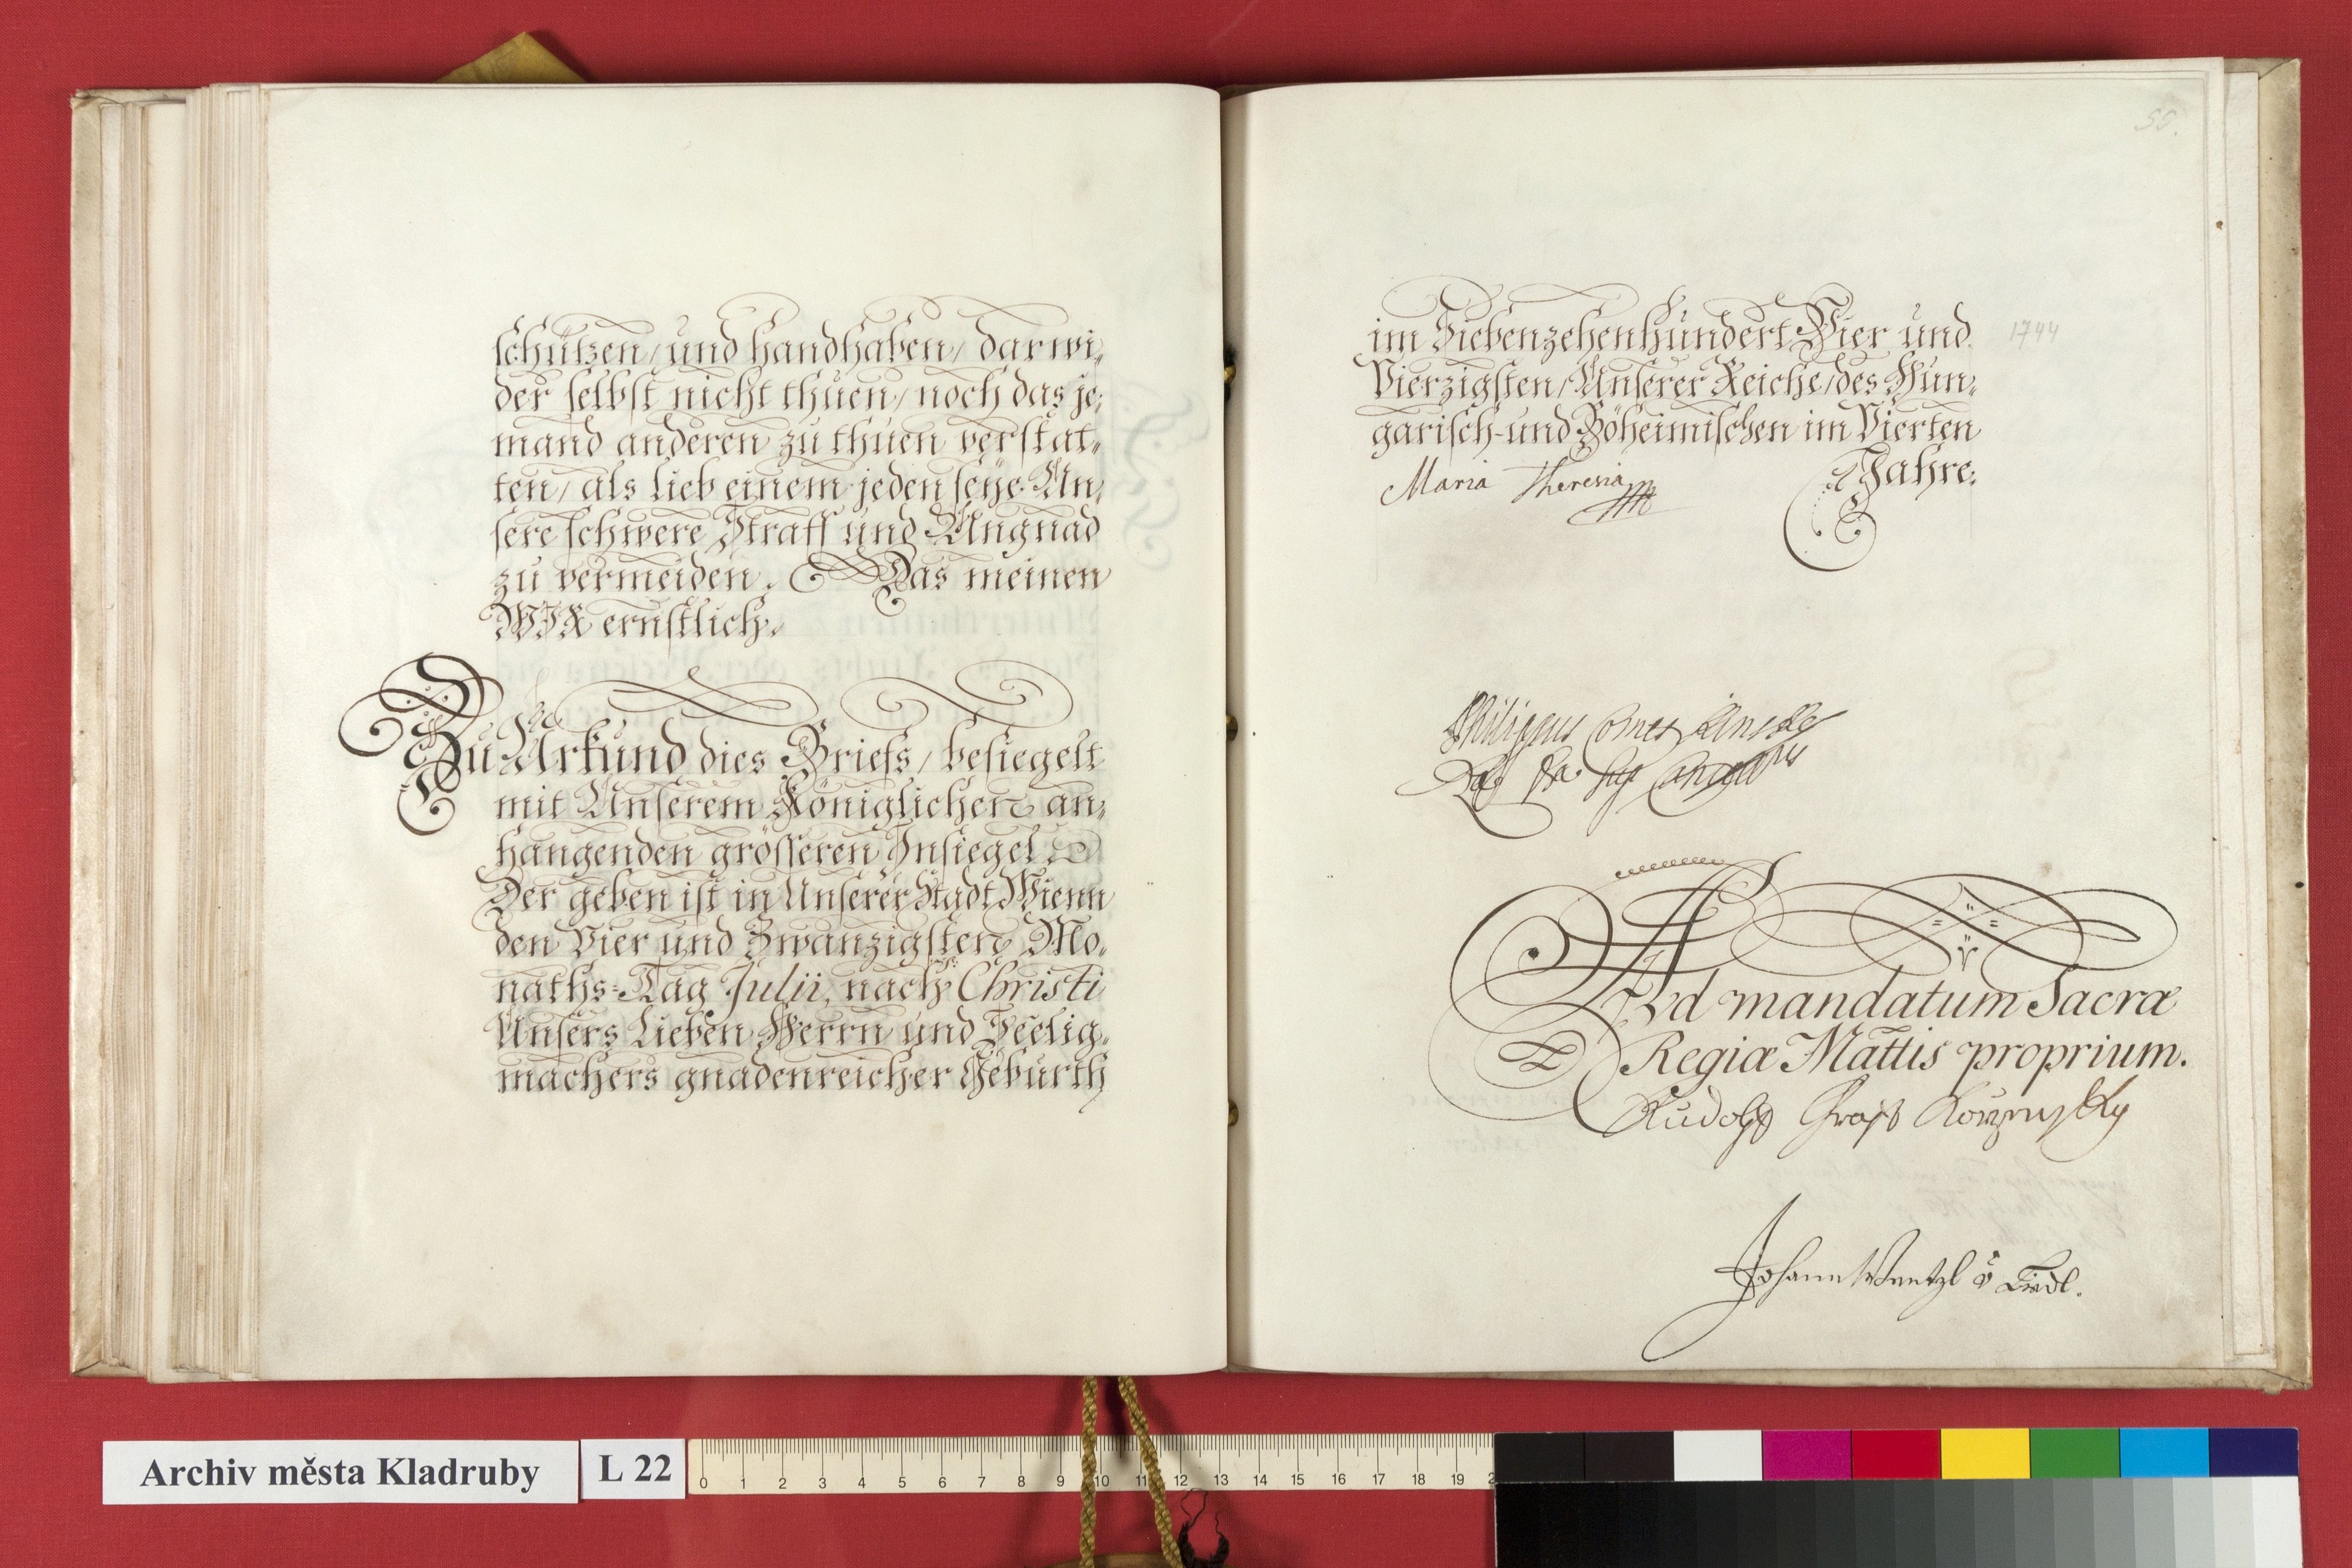 schützen, und handhaben, darwi-
der selbst nicht thuen, noch das je-
mand anderen zu thuen verstat-
ten, als lieb einem jeden seye Un-
sere schwere Straff und Ungnad
zu vermeiden. Das meinen
WIR ernstlich.
Zu Urkund dies Briefs, besiegelt
mit Unserem Königlichen an-
hangenden grösseren Insiegel
Der geben ist in Unserer Stadt Wienn
den Vier und Zwanzigsten Mo-
naths-Tag Julii, nach Christi
Unsers Lieben Herrn und Seelig-
machers gnadenreicher Geburth
55.
im Siebenzehenhundert Vier und 1744
Vierzigsten, Unserer Reiche, des Hun-
garisch- und Böheimischen im Vierten
Jahre.
Maria Theresia
Philippus Comes Kinsky
Ad mandatum Sacræ
Regiæ Mattis proprium.
Rudolph Graff Korzensky
Johann Wentzl v
Archiv města Kladruby L 22
0 1 2 3 4 5 6 7 8 9 10 11 12 13 14 15 16 17 18 19 2